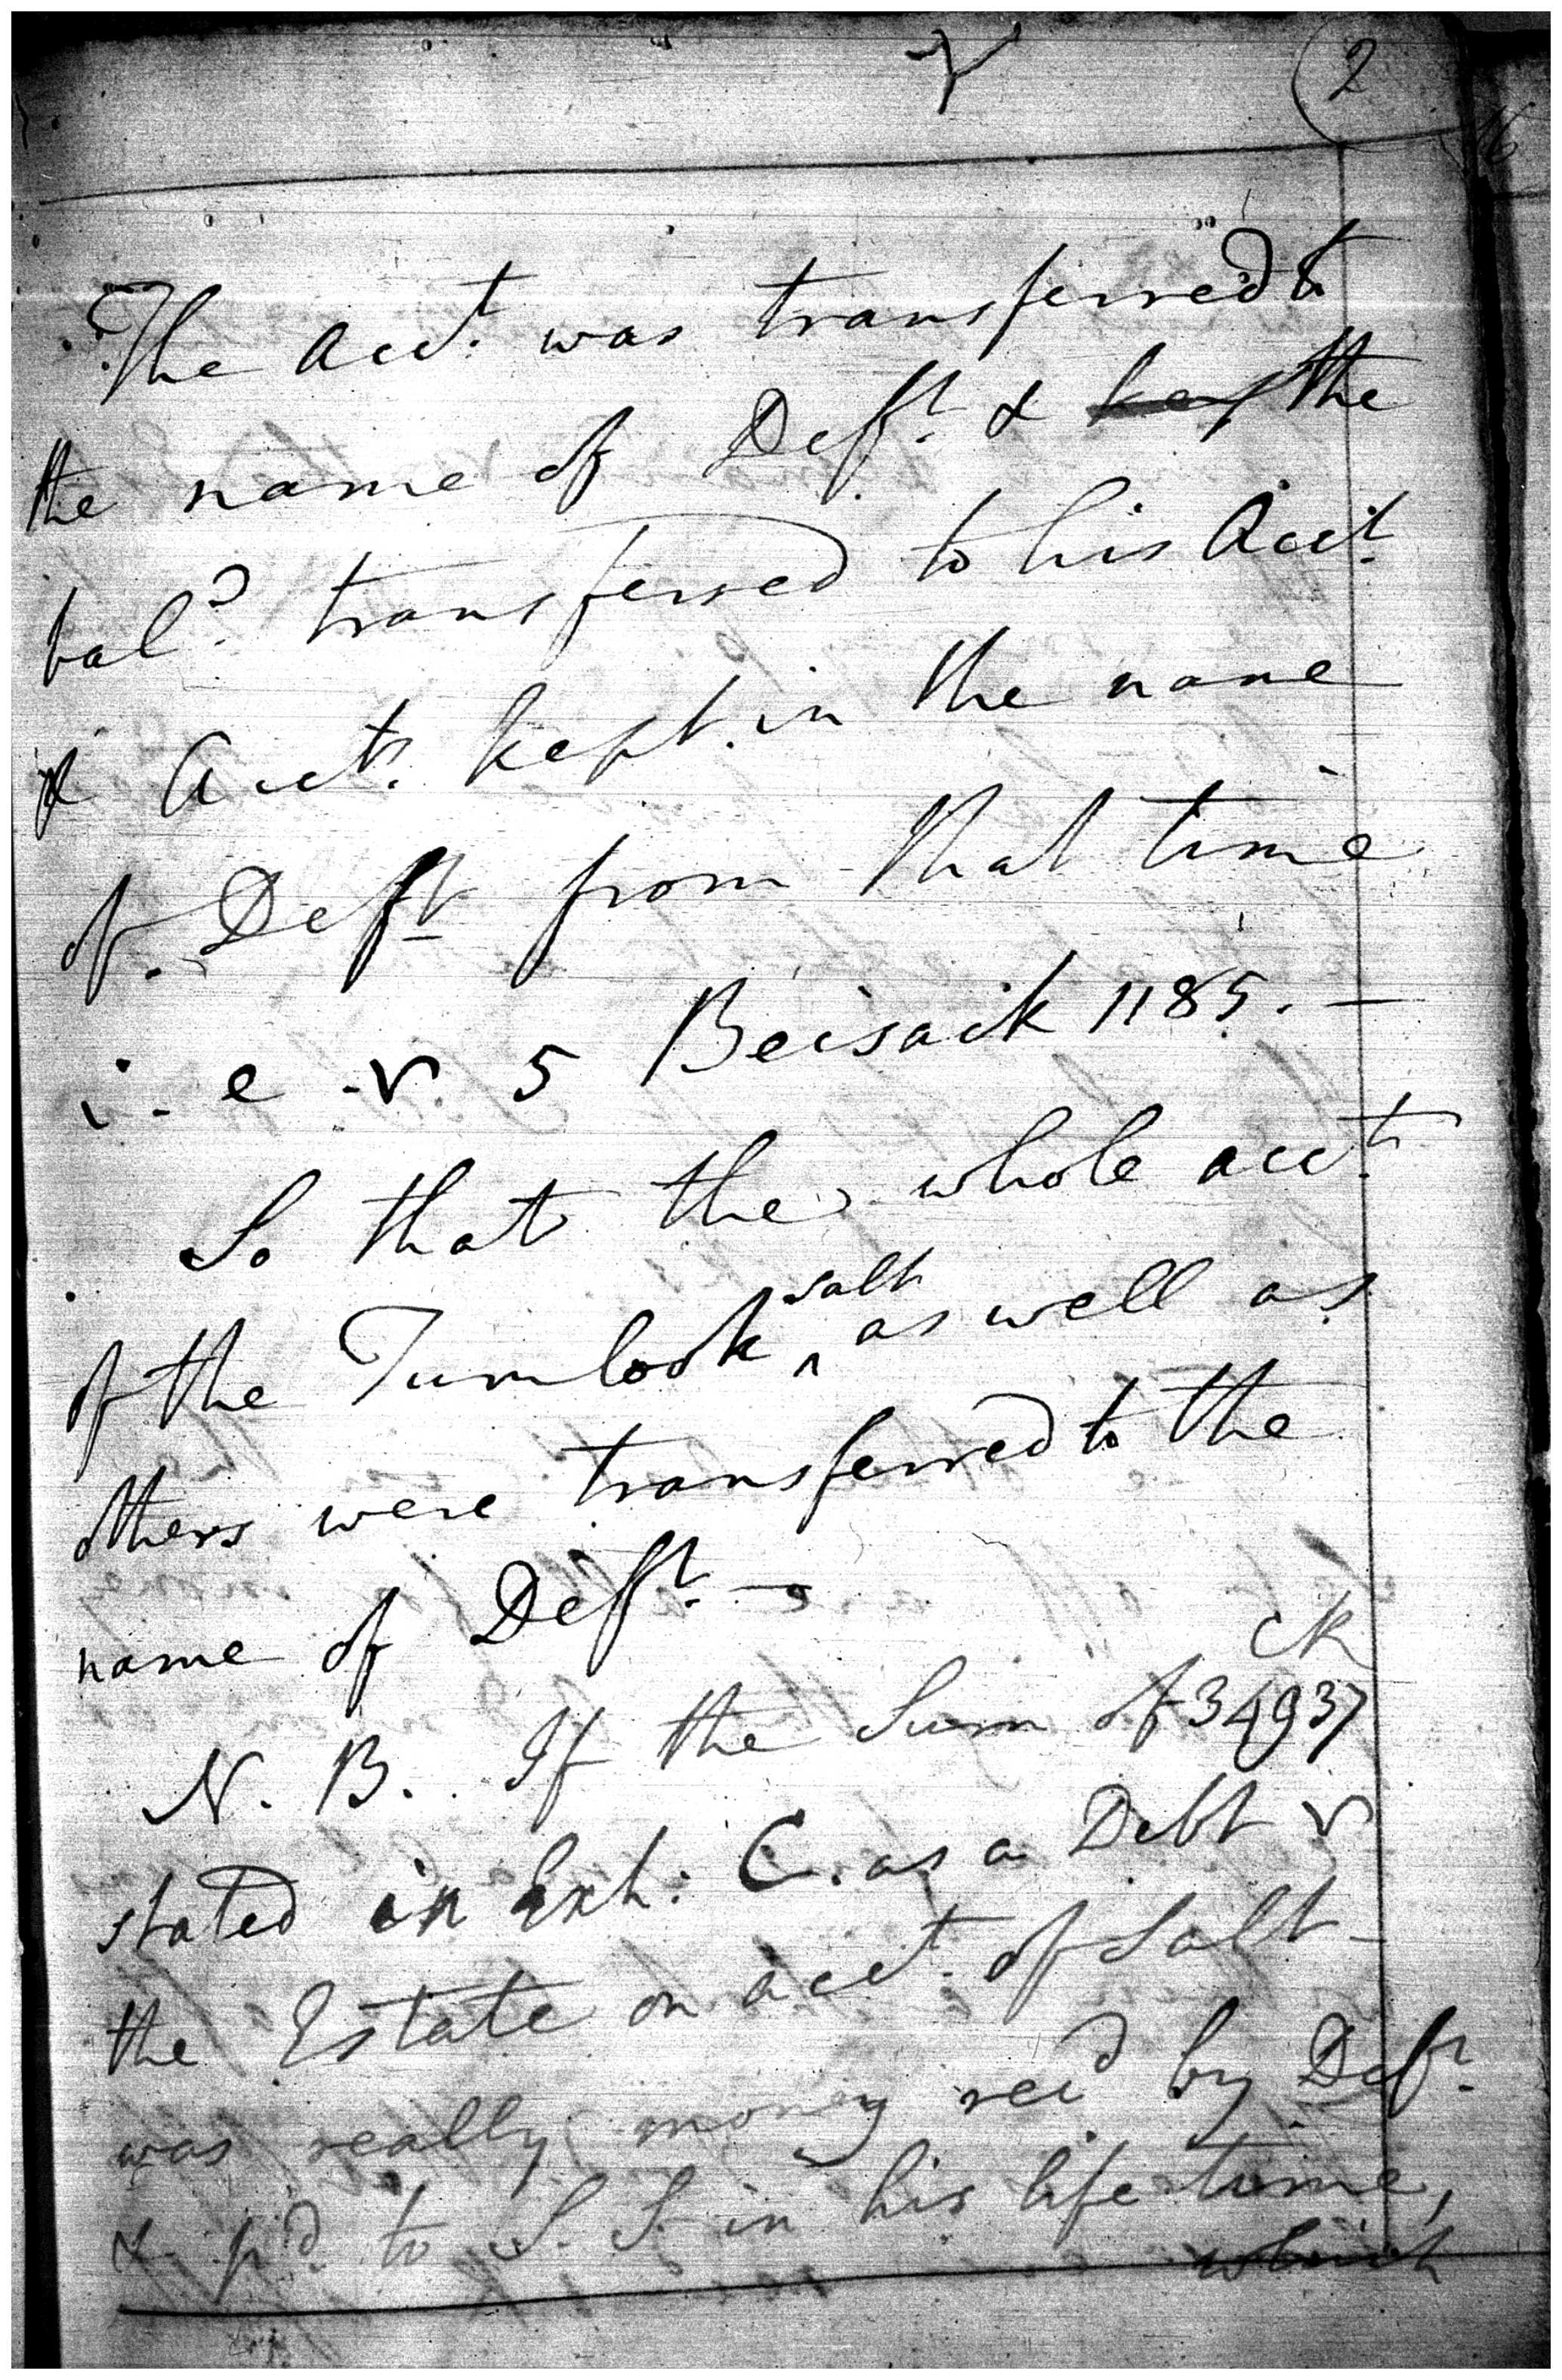 2
16
The Acct. was transferred to
the name of Deft. & kept the
balce. transferred to his Acct.
& Acct. kept in the name
of Deft from that time
i. e. v 5 Beisack 1185. —
So that the whole acct.
of the Tumlook ^salt as well as
others were transferred to the
name of Deft. —
CR
N. B. If the Sum of 34937
stated in Exh: C. as a Debt v
the Estate on acct. of Salt
was really money recd by Deft.
& pd. to S. S. in his life time,
which